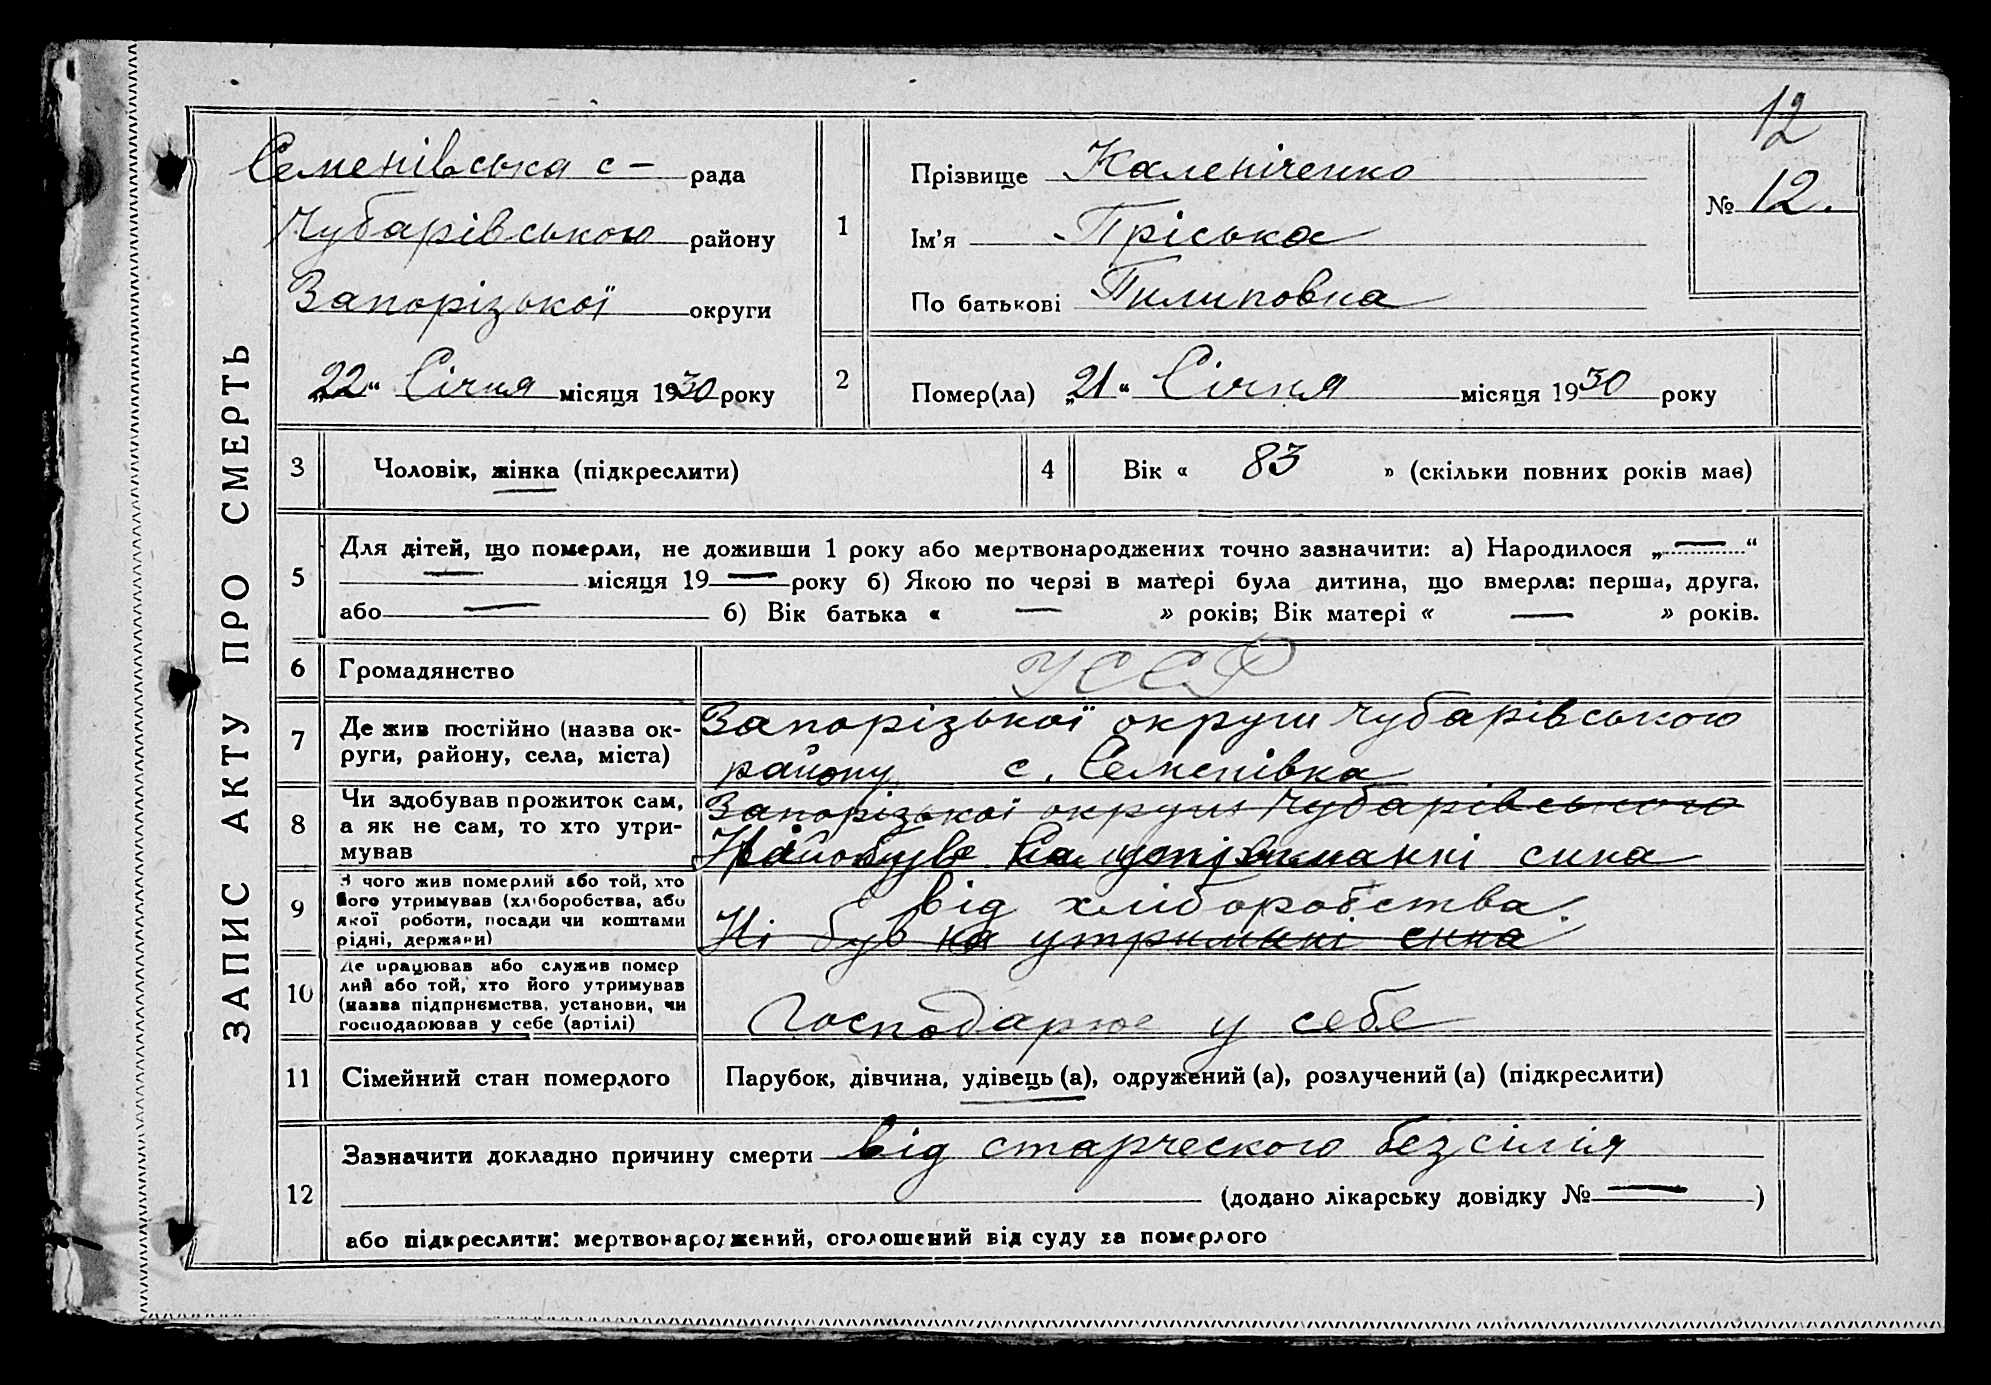 12
ЗАПИС АКТУ ПРО СМЕРТЬ
Семенівська с– рада
Чубарівського району
Запорізької округи
„22“ Січня місяця 1930 року
1
Прізвище Каленіченко
Ім'я Пріська
По батькові Пилиповна
№ 12.
2
Помер(ла) „21“ Січня місяця 1930 року
3 Чоловік, жінка (підкреслити)
4 Вік « 83 » (скільки повних років має)
5 Для дітей, що померли, не доживши 1 року або мертвонароджених точно зазначити: а) Народилося „—“
— місяця 19— року б) Якою по черзі в матері була дитина, що вмерла: перша, друга,
або — б) Вік батька « — » років; Вік матері « — » років.
6 Громадянство УССР
7 Де жив постійно (назва ок-
руги, району, села, міста)
Запорізької округи Чубарівського
району с. Семенівка
8 Чи здобував прожиток сам,
а як не сам, то хто утри-
мував
Запорізької округи Чубарівського
сина
9 З чого жив померлий або той, хто
його утримував (хліборобства, або
якої роботи, посади чи коштами
рідні, держави)
від хліборобства.
Ні був на утримані сина
10 Де працював або служив помер
лий або той, хто його утримував
(назва підприємства, установи, чи
господарював у себе (артілі)
Господарює у себе
11 Сімейний стан померлого Парубок, дівчина, удівець (а), одружений (а), розлучений (а) (підкреслити)
12 Зазначити докладно причину смерти від старческого безсілія
(додано лікарську довідку № — )
або підкреслити: мертвонароджений, оголошений від суду за померлого